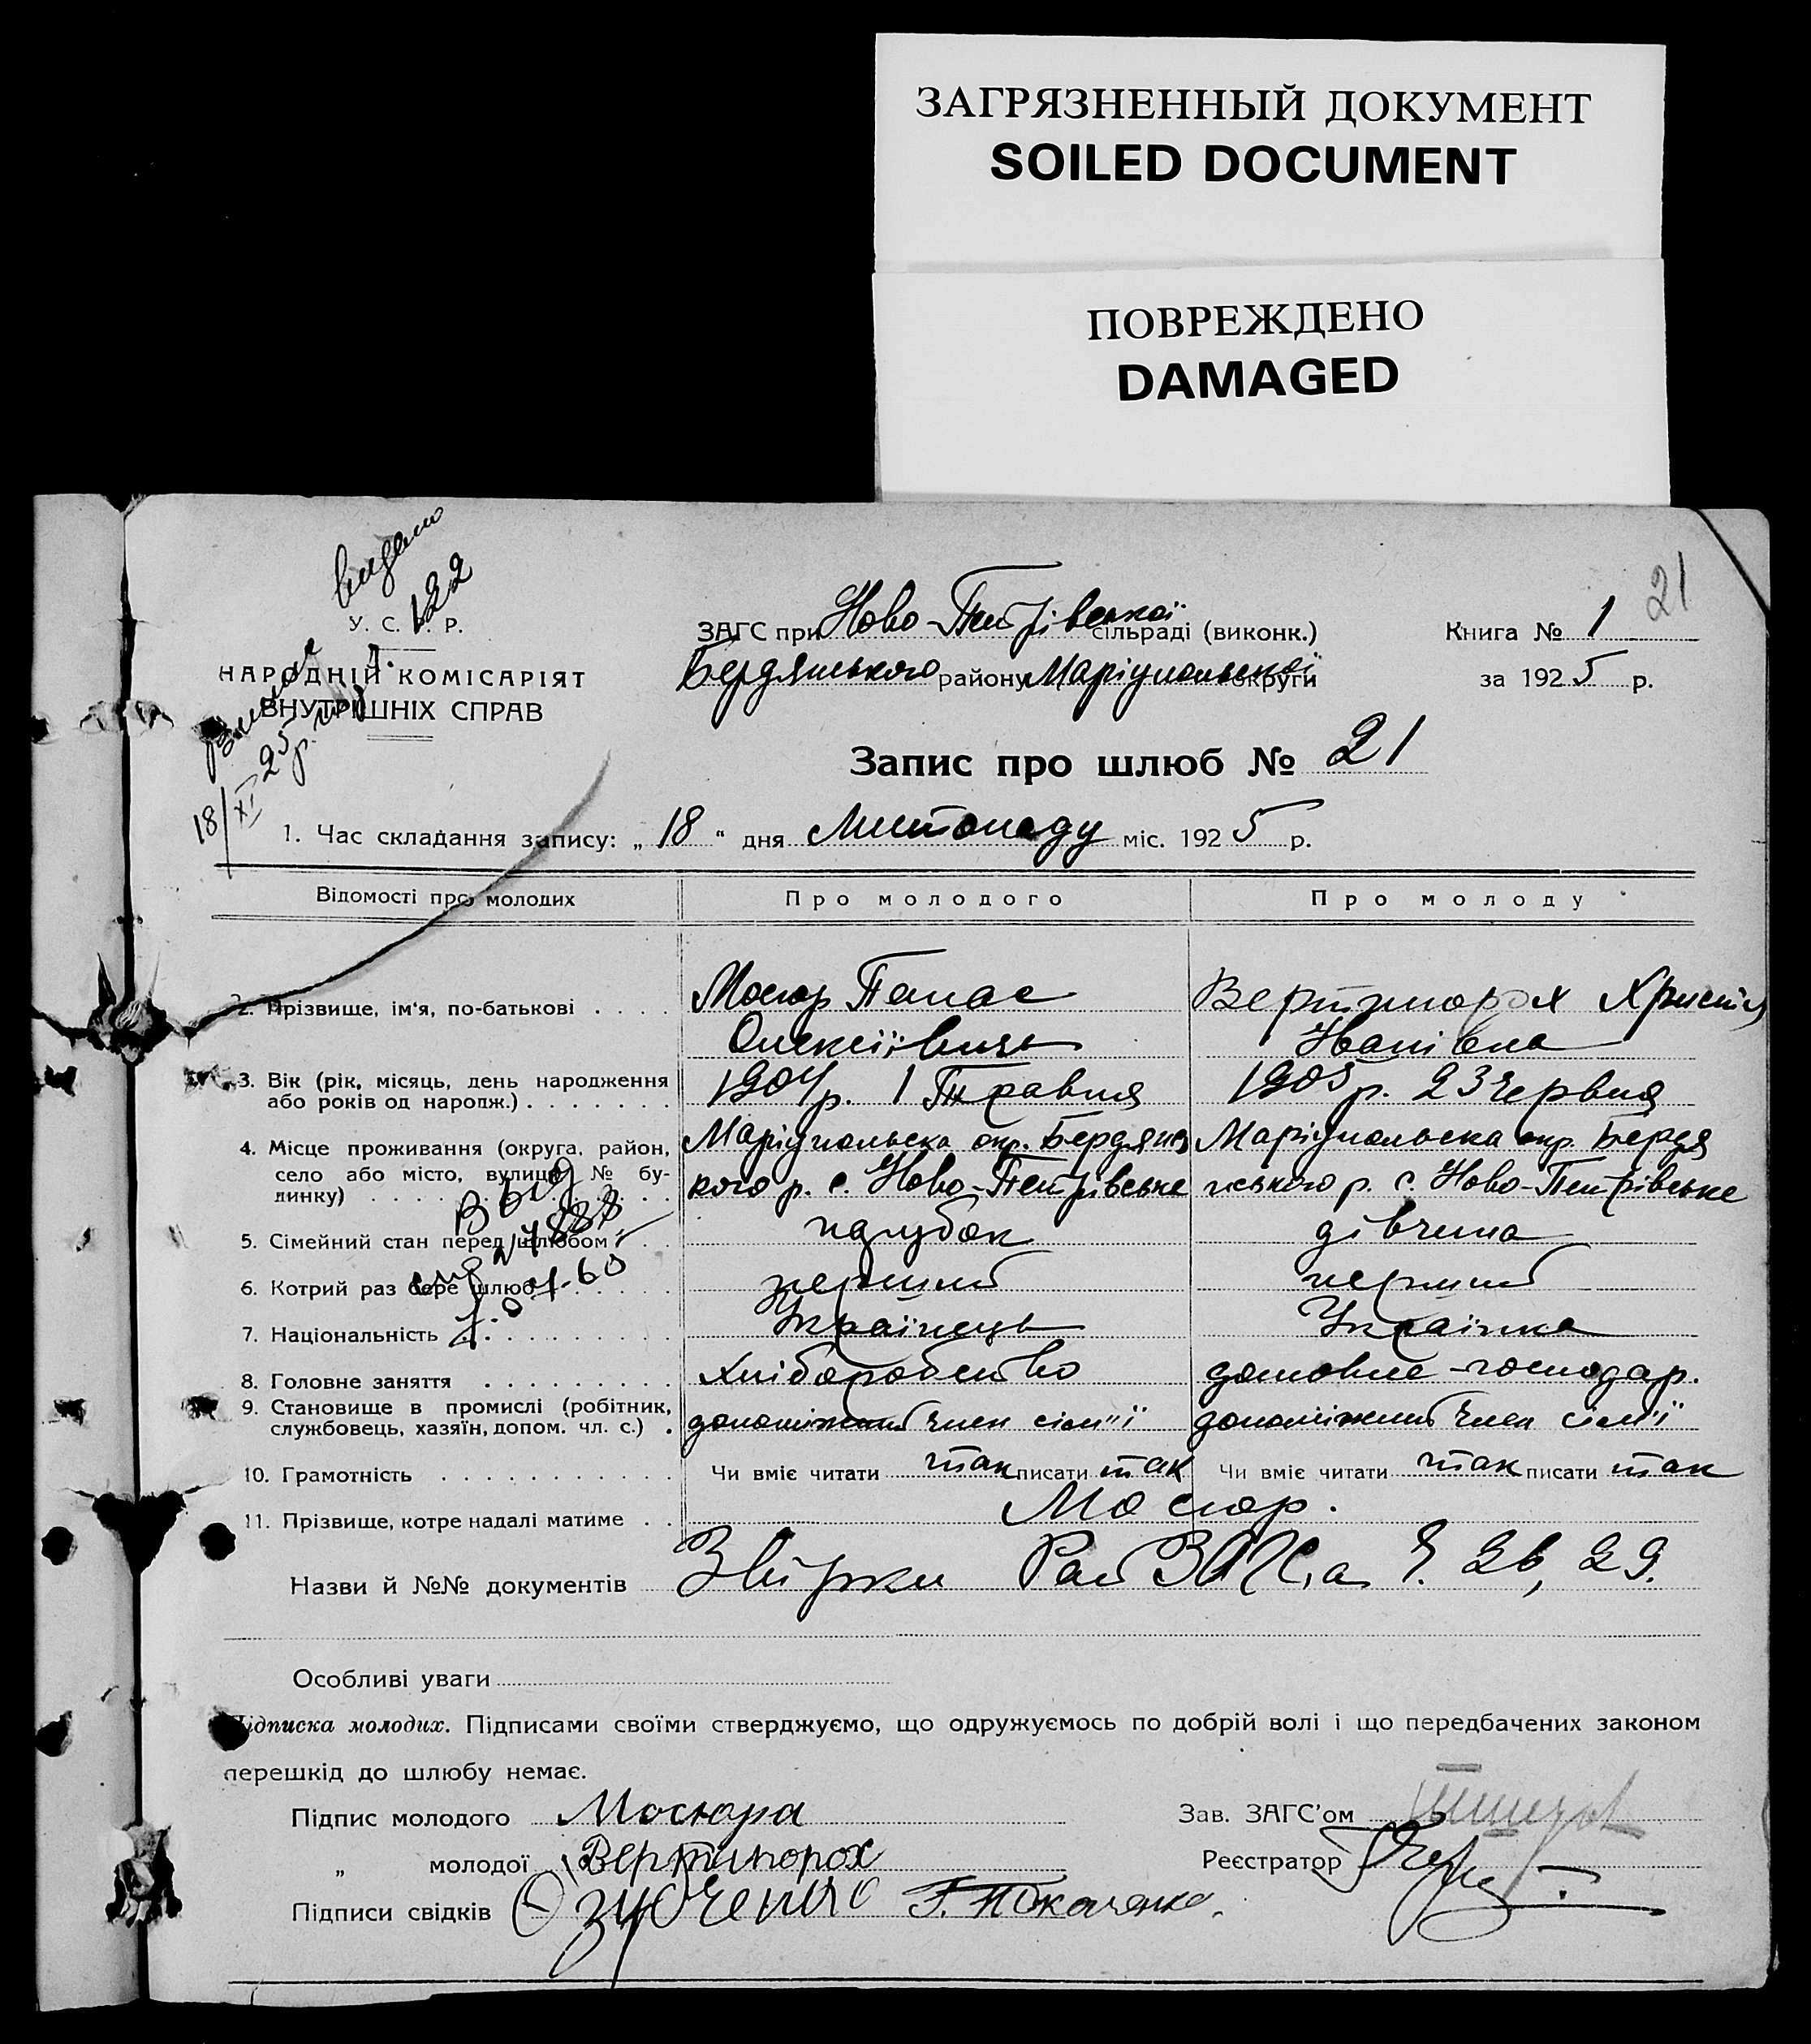 ЗАГРЯЗНЕННЫЙ ДОКУМЕНТ
SOILED DOCUMENT
ПОВРЕЖДЕНО
DAMAGED
видано
122
21
У. С. Р. Р.
НАРОДНІЙ КОМІСАРІЯТ
ВНУТРІШНІХ СПРАВ
18/XI 25 р.
ЗАГС при Ново-Петрівської сільраді (виконк.)
Книга № 1
Бердянського району Маріупольської округи
за 1925 р.
Запис про шлюб № 21
1. Час складання запису: „ 18 “ дня Листопаду міс. 1925 р.
Відомості про молодих Про молодого Про молоду
2. Прізвище, ім'я, по-батькові . . . . Мосюр Панас Вертипорох Христія
Олексіївичь Іванівна
3. Вік (рік, місяць, день народження 1904 р. 1 Травня 1905 р. 23 червня
або років од народж.) . . . . . . .
4. Місце проживання (округа, район, Маріупольска окр. Бердянсь Маріупольська окр. Бердя
село або місто, вулиця, № бу- кого р. с. Ново-Петрівське нського р. с. Ново-Петрівське
динку) . . . . . . . . . . . .
Выд
5. Сімейний стан перед шлюбом . . . парубок дівчина
6. Котрий раз бере шлюб . . . . . . перший перший
7. Національність . . . . . . . . . Українець Українка
8. Головне заняття . . . . . . . . . Хліборобство домовне-господар.
9. Становище в промислі (робітник,
службовець, хазяїн, допом. чл. с.) . допоміжний член сім"ї допоміжний член сім"ї
10. Грамотність . . . . . . . . . . . Чи вміє читати так писати так Чи вміє читати так писати так
11. Прізвище, котре надалі матиме . . Мосюр.
Назви й №№ документів Звірки Рай ЗАГС,а Ч. 26, 29.
Особливі уваги
Підписка молодих. Підписами своїми стверджуємо, що одружуємось по добрій волі і що передбачених законом
перешкід до шлюбу немає.
Підпис молодого Мосюра Зав. ЗАГС'ом
„ молодої Вертипорох Реєстратор
Підписи свідків